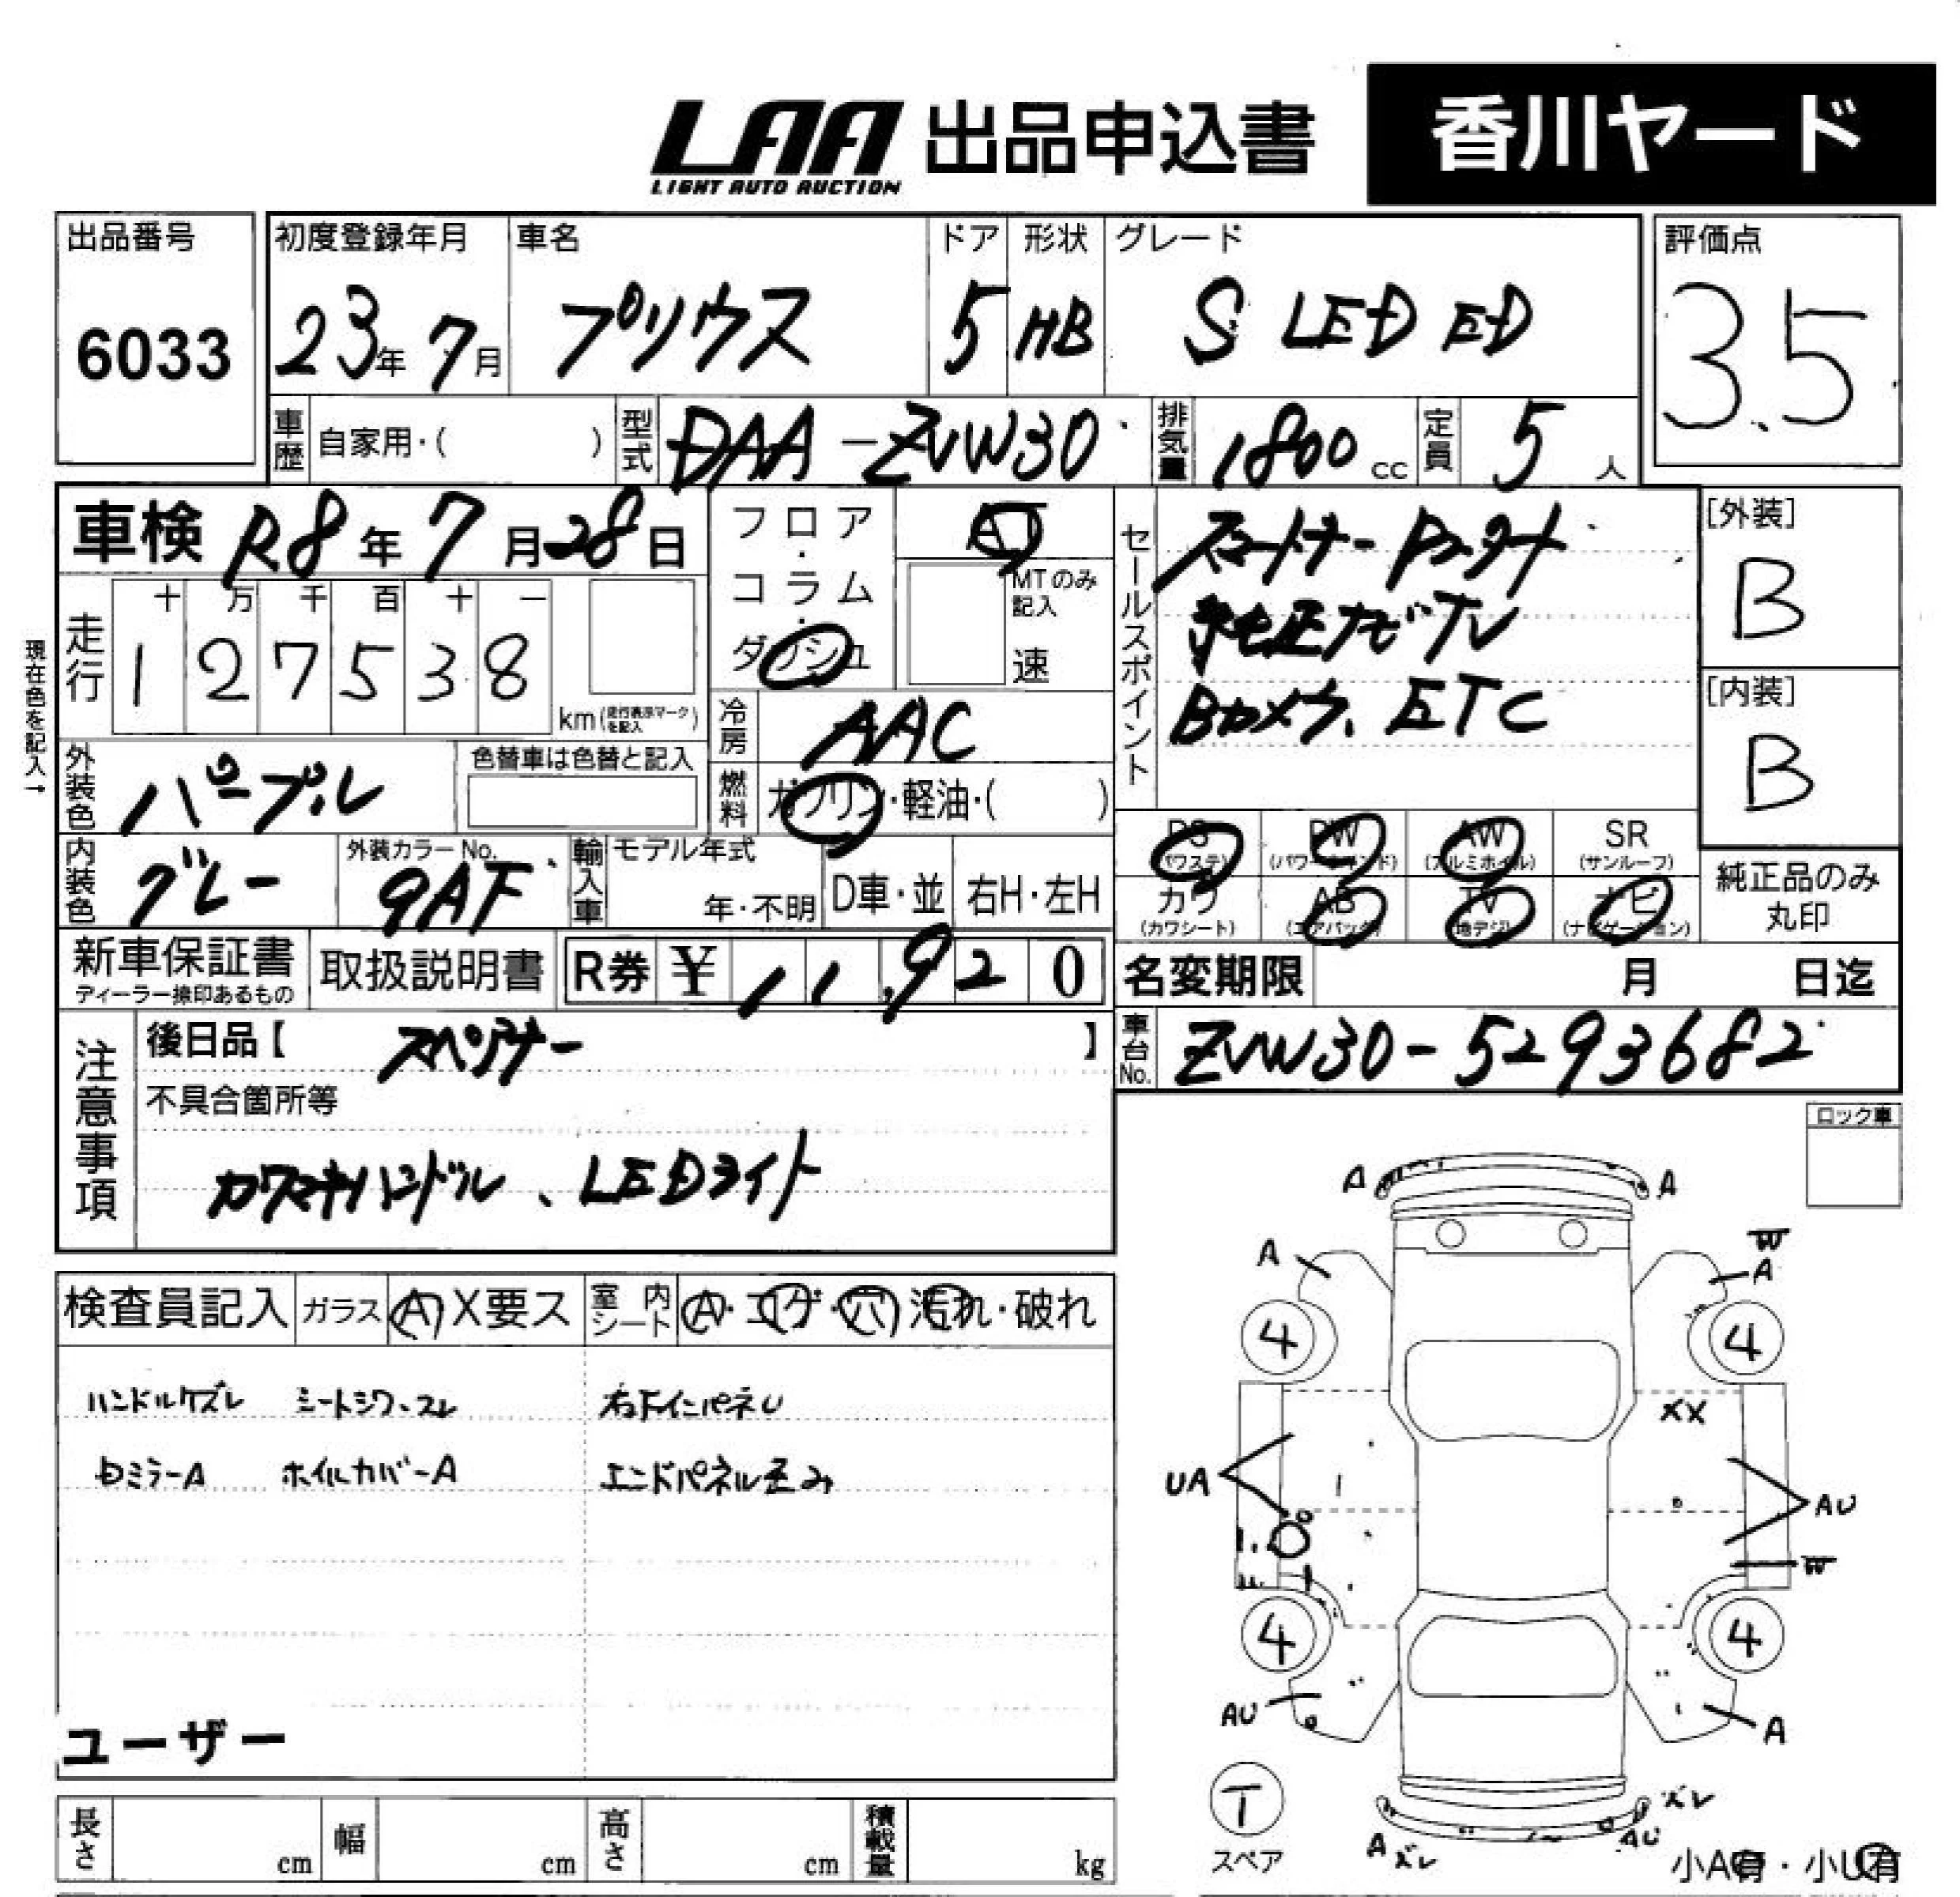 LAA 出品申込書 香川ヤード
LIGHT AUTO AUCTION
出品番号 初度登録年月 車名 ドア 形状 グレード 評価点
6033 23年 7月 プリウス 5 HB S LED ED 3.5
車歴 自家用・( ) 型式 DAA-ZVW30 排気量 1800 cc 定員 5 人
車検 R8年 7月 28日
フロア・コラム・ダッシュ AT
MTのみ記入 速
セールスポイント
スマートキー Pスタート
純正ナビTV
Bカメラ、ETC
[外装]
B
[内装]
B
現在色を記入→
走行 十 万 千 百 十 一
1 2 7 5 3 8 km (走行表示マークを記入)
冷房 AAC
外装色 パープル 色替車は色替と記入
燃料 ガソリン・軽油・( )
内装色 グレー 外装カラーNo. 9AF 輸入車 モデル年式 年・不明 D車・並 右H・左H
PS (パワステ) PW (パワーウインド) AW (アルミホイル) SR (サンルーフ)
カワ (カワシート) AB (エアバッグ) TV (地デジ) ナビ (ナビゲーション)
純正品のみ丸印
新車保証書 ディーラー捺印あるもの 取扱説明書 R券 ¥ 11,920
名変期限 月 日迄
車台No. ZVW30-5293682
注意事項
後日品【 スペアキー 】
不具合箇所等
カワマキハンドル、LEDライト
ロック車
検査員記入 ガラス A X要ス 室内シート A・コゲ・穴・汚れ・破れ
ハンドルケズレ シートシワ、スレ 右下インパネU
ミラーA ホイルカバーA エンドパネル歪み
ユーザー
A A
A W A
4 4
XX
UA AU
W
4 4
AU A
T
スペア
ズレ
A ズレ AU
小A有・小U有
長さ cm 幅 cm 高さ cm 積載量 kg